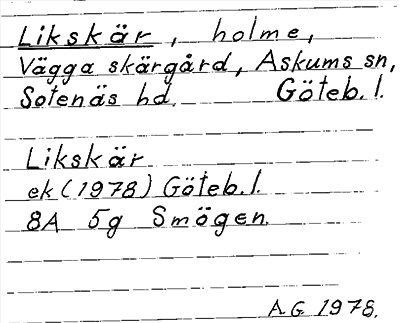 Likskär, holme,
Vägga skärgård, Askums sn,
Sotenäs hd. Göteb. l.
Likskär
ek (1978) Göteb. l.
8A 5g Smögen.
A.G 1978.